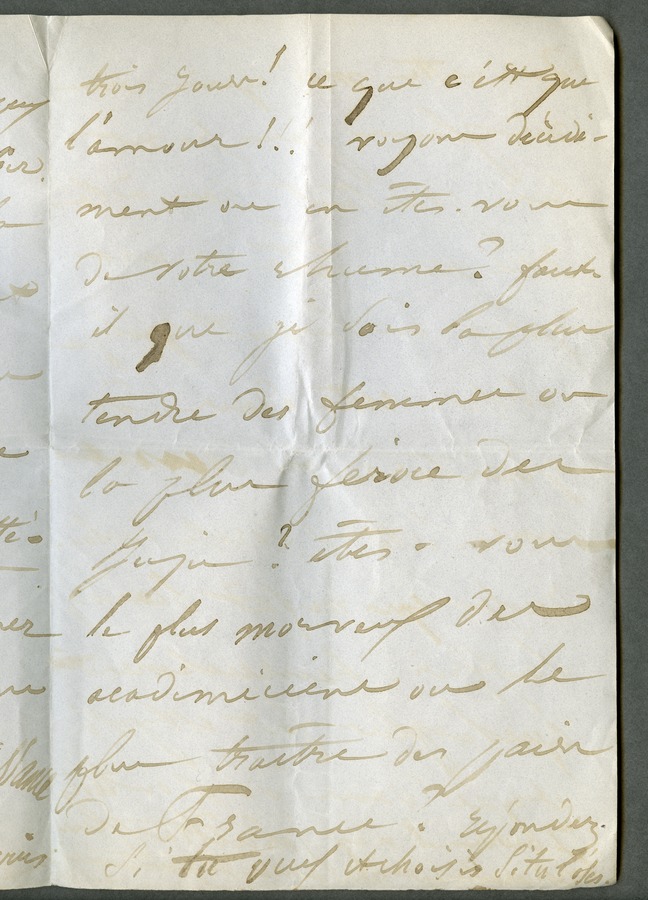 trois jours! ce que c'est que
l'amour!!! voyons décidé-
ment ou en êtes-vous
de votre rhume? faut-
il que je sois la plus
tendre des femmes ou
la plus féroce des
Juju? êtes-vous
le plus morveux des
académiciens ou le
plus traitre des pairs
de France? répondez.
Si tu peux et choisis Si tu l'oses.